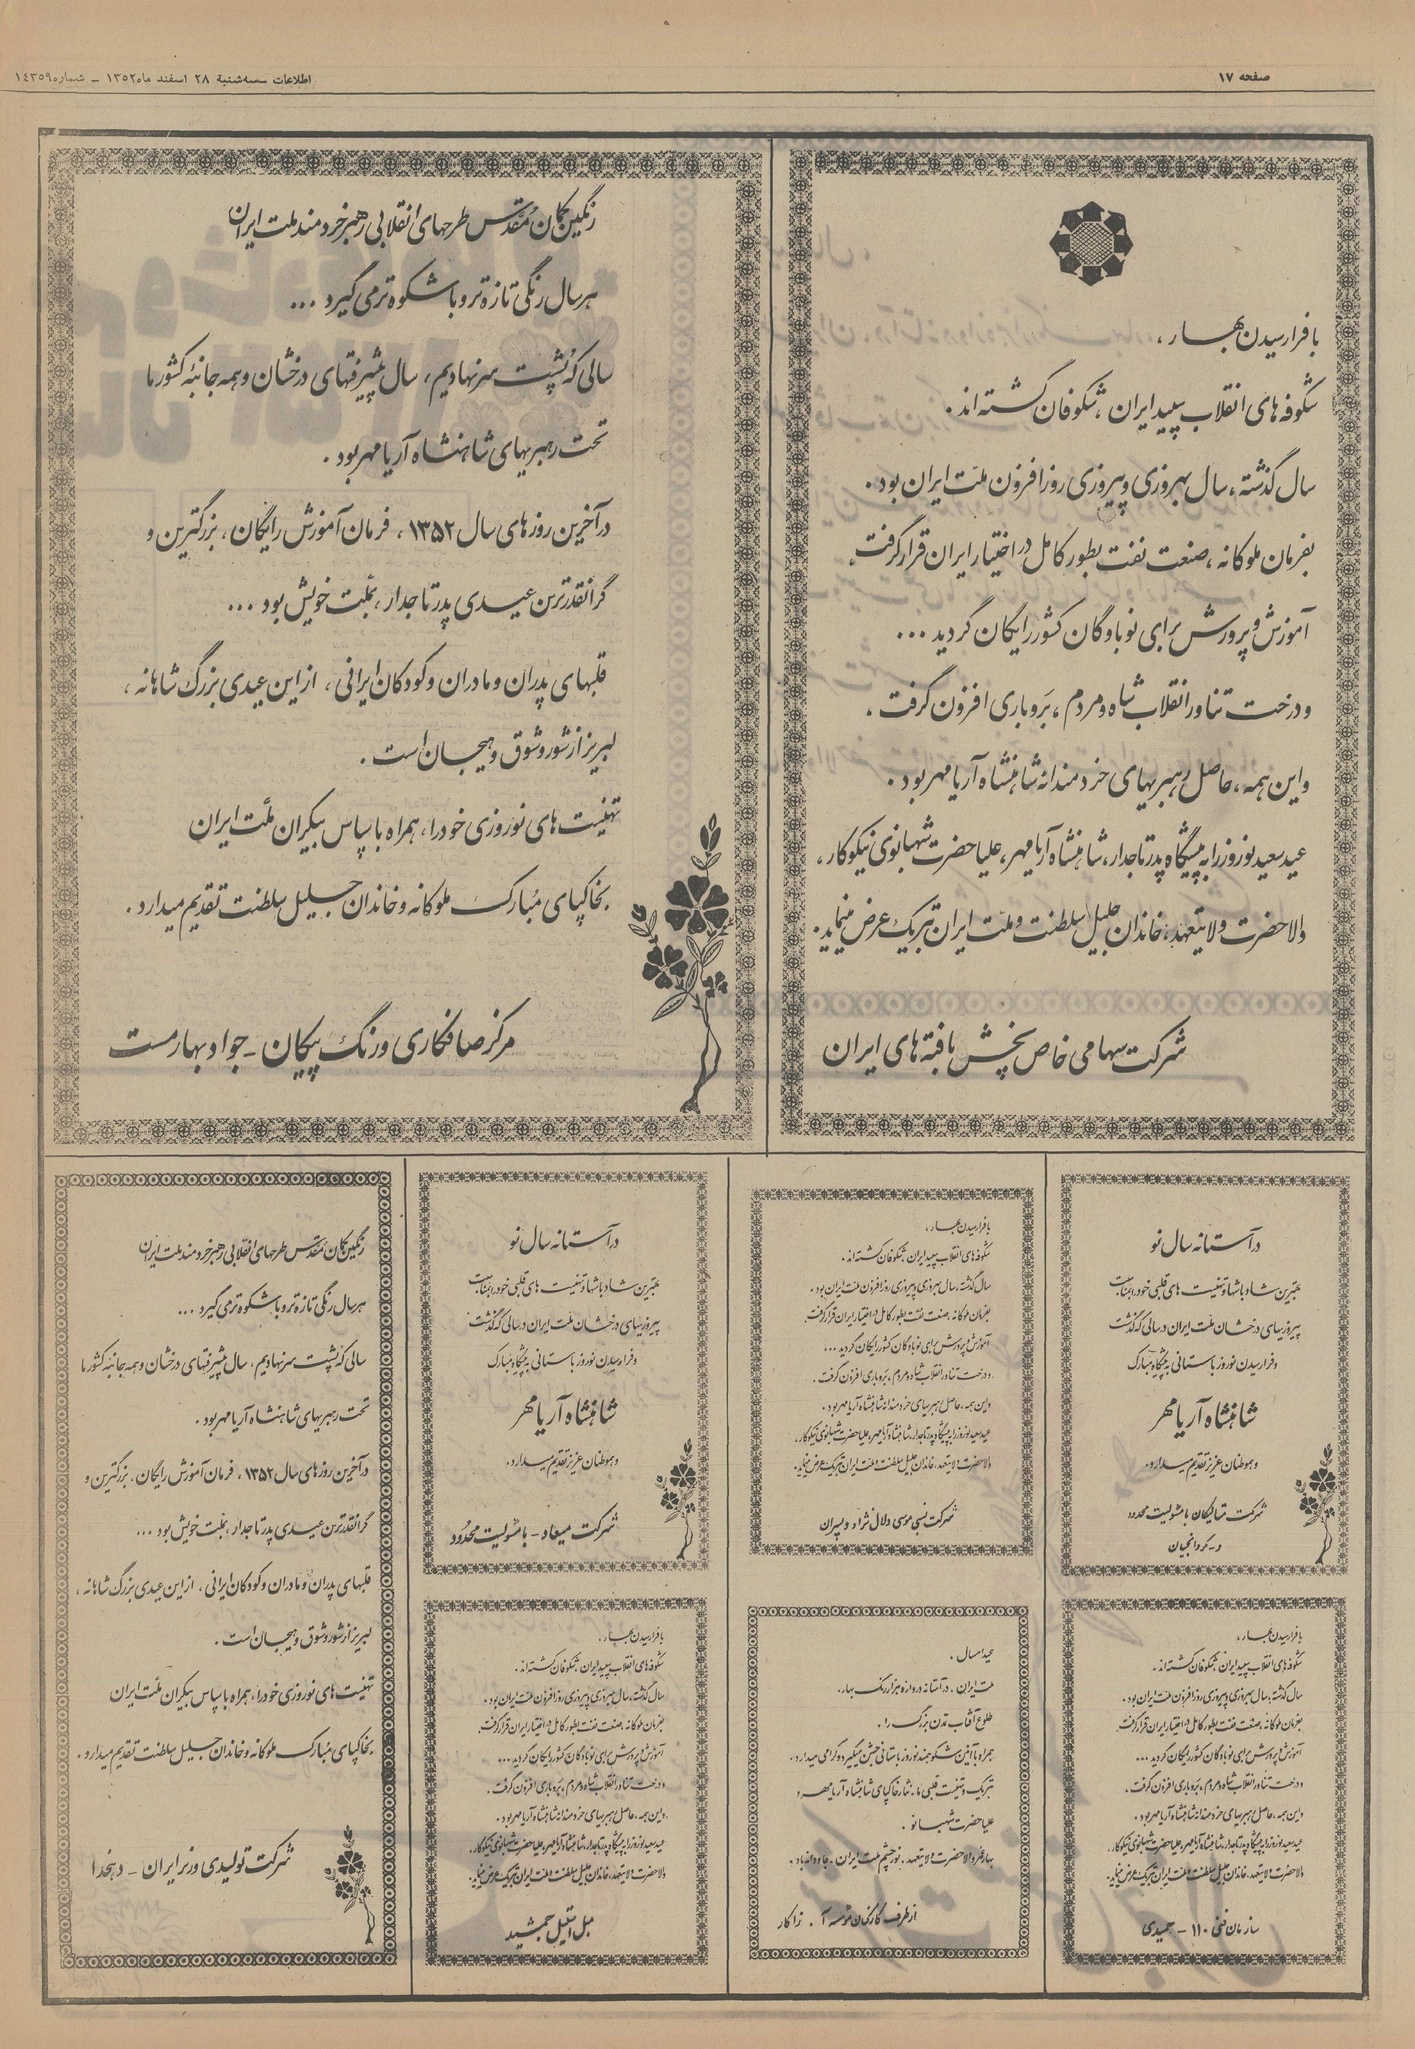 صفحه ۱۷
اطلاعات سه‌شنبه ۲۸ اسفند ماه ۱۳۵۲ – شماره ۱٤۳۵۹
با فرارسیدن بهار ،
شکوفه‌های انقلاب سپید ایران ، شکوفان گشته‌اند .
سال گذشته ، سال بهروزی و پیروزی روزافزون ملت ایران بود .
بفرمان ملوکانه ، صنعت نفت بطور کامل در اختیار ایران قرار گرفت .
آموزش و پرورش برای نوباوگان کشور رایگان گردید ...
و درخت تناور انقلاب شاه و مردم ، بَر و باری افزون گرفت .
و این همه ، حاصل رهبریهای خردمندانه شاهنشاه آریامهر بود .
عید سعید نوروز را به پیشگاه پدر تاجدار ، شاهنشاه آریامهر ، علیاحضرت شهبانوی نیکوکار ،
والاحضرت ولایتعهد ، خاندان جلیل سلطنت و ملت ایران تبریک عرض مینماید .
شرکت سهامی خاص پخش بافته‌های ایران
رنگین کمان مُقدّس طرحهای انقلابی رهبر خردمند ملت ایران
هر سال رنگی تازه‌تر و باشکوه‌تر می‌گیرد ...
سالی که پُشت سر نهادیم ، سال پیشرفتهای درخشان و همه جانبهٔ کشور ما
تحت رهبریهای شاهنشاه آریامهر بود .
در آخرین روزهای سال ۱۳۵۲ ، فرمان آموزش رایگان ، بزرگترین و
گرانقدرترین عیدی پدر تاجدار ، بملّت خویش بود ...
قلبهای پدران و مادران و کودکان ایرانی ، از این عیدی بزرگ شاهانه ،
لبریز از شور و شوق و هیجان است .
تهنیت‌های نوروزی خود را ، همراه با سپاس بیکران ملّت ایران
بخاکپای مُبارک ملوکانه و خاندان جلیل سلطنت تقدیم میدارد .
مرکز صافکاری و رنگ پیکان - جواد بهارمست
در آستانه سال نو
پیروزیهای درخشان ملت ایران در سالی که گذشت
و فرارسیدن نوروز باستانی به پیشگاه مبارک
شاهنشاه آریامهر
و هموطنان عزیز تقدیم میدارد .
با مسئولیت محدود
با فرارسیدن بهار ،
شکوفه‌های انقلاب سپید ایران ، شکوفان گشته‌اند .
سال گذشته ، سال بهروزی و پیروزی روزافزون ملت ایران بود .
بفرمان ملوکانه ، صنعت نفت بطور کامل در اختیار ایران قرار گرفت .
آموزش و پرورش برای نوباوگان کشور رایگان گردید ...
و درخت تناور انقلاب شاه و مردم ، بَر و باری افزون گرفت .
و این همه ، حاصل رهبریهای خردمندانه شاهنشاه آریامهر بود .
عید سعید نوروز را به پیشگاه پدر تاجدار ، شاهنشاه آریامهر ، علیاحضرت شهبانوی نیکوکار ،
والاحضرت ولایتعهد ، خاندان جلیل سلطنت و ملت ایران تبریک عرض مینماید .
شرکت نسبی موسی دلال نژاد و پسران
در آستانه سال نو
پیروزیهای درخشان ملت ایران در سالی که گذشت
و فرارسیدن نوروز باستانی به پیشگاه مبارک
شاهنشاه آریامهر
و هموطنان عزیز تقدیم میدارد .
شرکت میعاد - با مسئولیت محدود
رنگین کمان مُقدّس طرحهای انقلابی رهبر خردمند ملت ایران
هر سال رنگی تازه‌تر و باشکوه‌تر می‌گیرد ...
سالی که پُشت سر نهادیم ، سال پیشرفتهای درخشان و همه جانبه کشور ما
تحت رهبریهای شاهنشاه آریامهر بود .
در آخرین روزهای سال ۱۳۵۲ ، فرمان آموزش رایگان ، بزرگترین و
گرانقدرترین عیدی پدر تاجدار ، بملّت خویش بود ...
قلبهای پدران و مادران و کودکان ایرانی ، از این عیدی بزرگ شاهانه ،
لبریز از شور و شوق و هیجان است .
تهنیت‌های نوروزی خود را ، همراه با سپاس بیکران ملّت ایران
بخاکپای مُبارک ملوکانه و خاندان جلیل سلطنت تقدیم میدارد .
شرکت تولیدی وزیر ایران - دهخدا
با فرارسیدن بهار ،
شکوفه‌های انقلاب سپید ایران ، شکوفان گشته‌اند .
سال گذشته ، سال بهروزی و پیروزی روزافزون ملت ایران بود .
بفرمان ملوکانه ، صنعت نفت بطور کامل در اختیار ایران قرار گرفت .
آموزش و پرورش برای نوباوگان کشور رایگان گردید ...
و درخت تناور انقلاب شاه و مردم ، بَر و باری افزون گرفت .
و این همه ، حاصل رهبریهای خردمندانه شاهنشاه آریامهر بود .
عید سعید نوروز را به پیشگاه پدر تاجدار ، شاهنشاه آریامهر ، علیاحضرت شهبانوی نیکوکار ،
والاحضرت ولایتعهد ، خاندان جلیل سلطنت و ملت ایران تبریک عرض مینماید .
سازمان فنی ۱۱۰ - حمیدی
عید امسال .
ملت ایران ، در آستانه دروازه هزار رنگ بهار ،
طلوع آفتاب تمدن بزرگ را ،
همراه با آئین شکوهمند نوروز باستانی جشن میگیرد و گرامی میدارد .
تبریک و تهنیت قلبی ما ، نثار خاکپای شاهنشاه آریامهر و
علیاحضرت شهبانو .
والاحضرت ولایتعهد ، نور چشم ملت ایران ، جاودانه باد .
از طرف کارکنان مؤسسه آ . زاکار
با فرارسیدن بهار ،
شکوفه‌های انقلاب سپید ایران ، شکوفان گشته‌اند .
سال گذشته ، سال بهروزی و پیروزی روزافزون ملت ایران بود .
بفرمان ملوکانه ، صنعت نفت بطور کامل در اختیار ایران قرار گرفت .
آموزش و پرورش برای نوباوگان کشور رایگان گردید ...
و درخت تناور انقلاب شاه و مردم ، بَر و باری افزون گرفت .
و این همه ، حاصل رهبریهای خردمندانه شاهنشاه آریامهر بود .
عید سعید نوروز را به پیشگاه پدر تاجدار ، شاهنشاه آریامهر ، علیاحضرت شهبانوی نیکوکار ،
والاحضرت ولایتعهد ، خاندان جلیل سلطنت و ملت ایران تبریک عرض مینماید .
مبل استیل جمشید